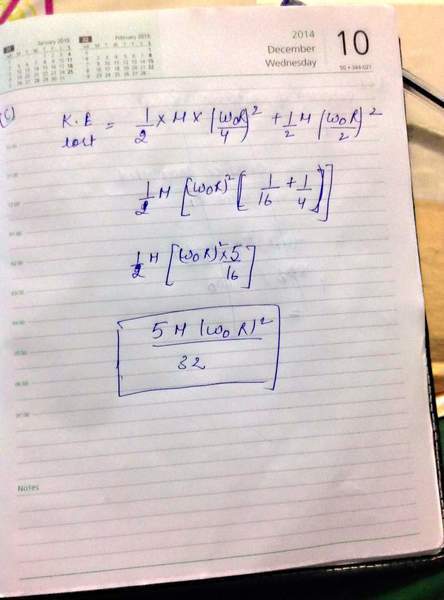 January 2015
February 2015
2014
December
Wednesday
10
50 • 344-021
(C)
K.E lost = 1/2 × M × (ω₀R/4)² + 1/2 M (ω₀R/2)²
1/2 M [(ω₀R)² (1/16 + 1/4)]
1/2 M [(ω₀R)² × 5/16]
5 M (ω₀ R)²/32
Notes